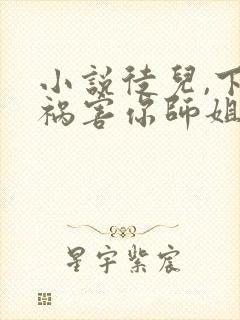 小説徒兒,下
祸害你師姐
星宇紫宸